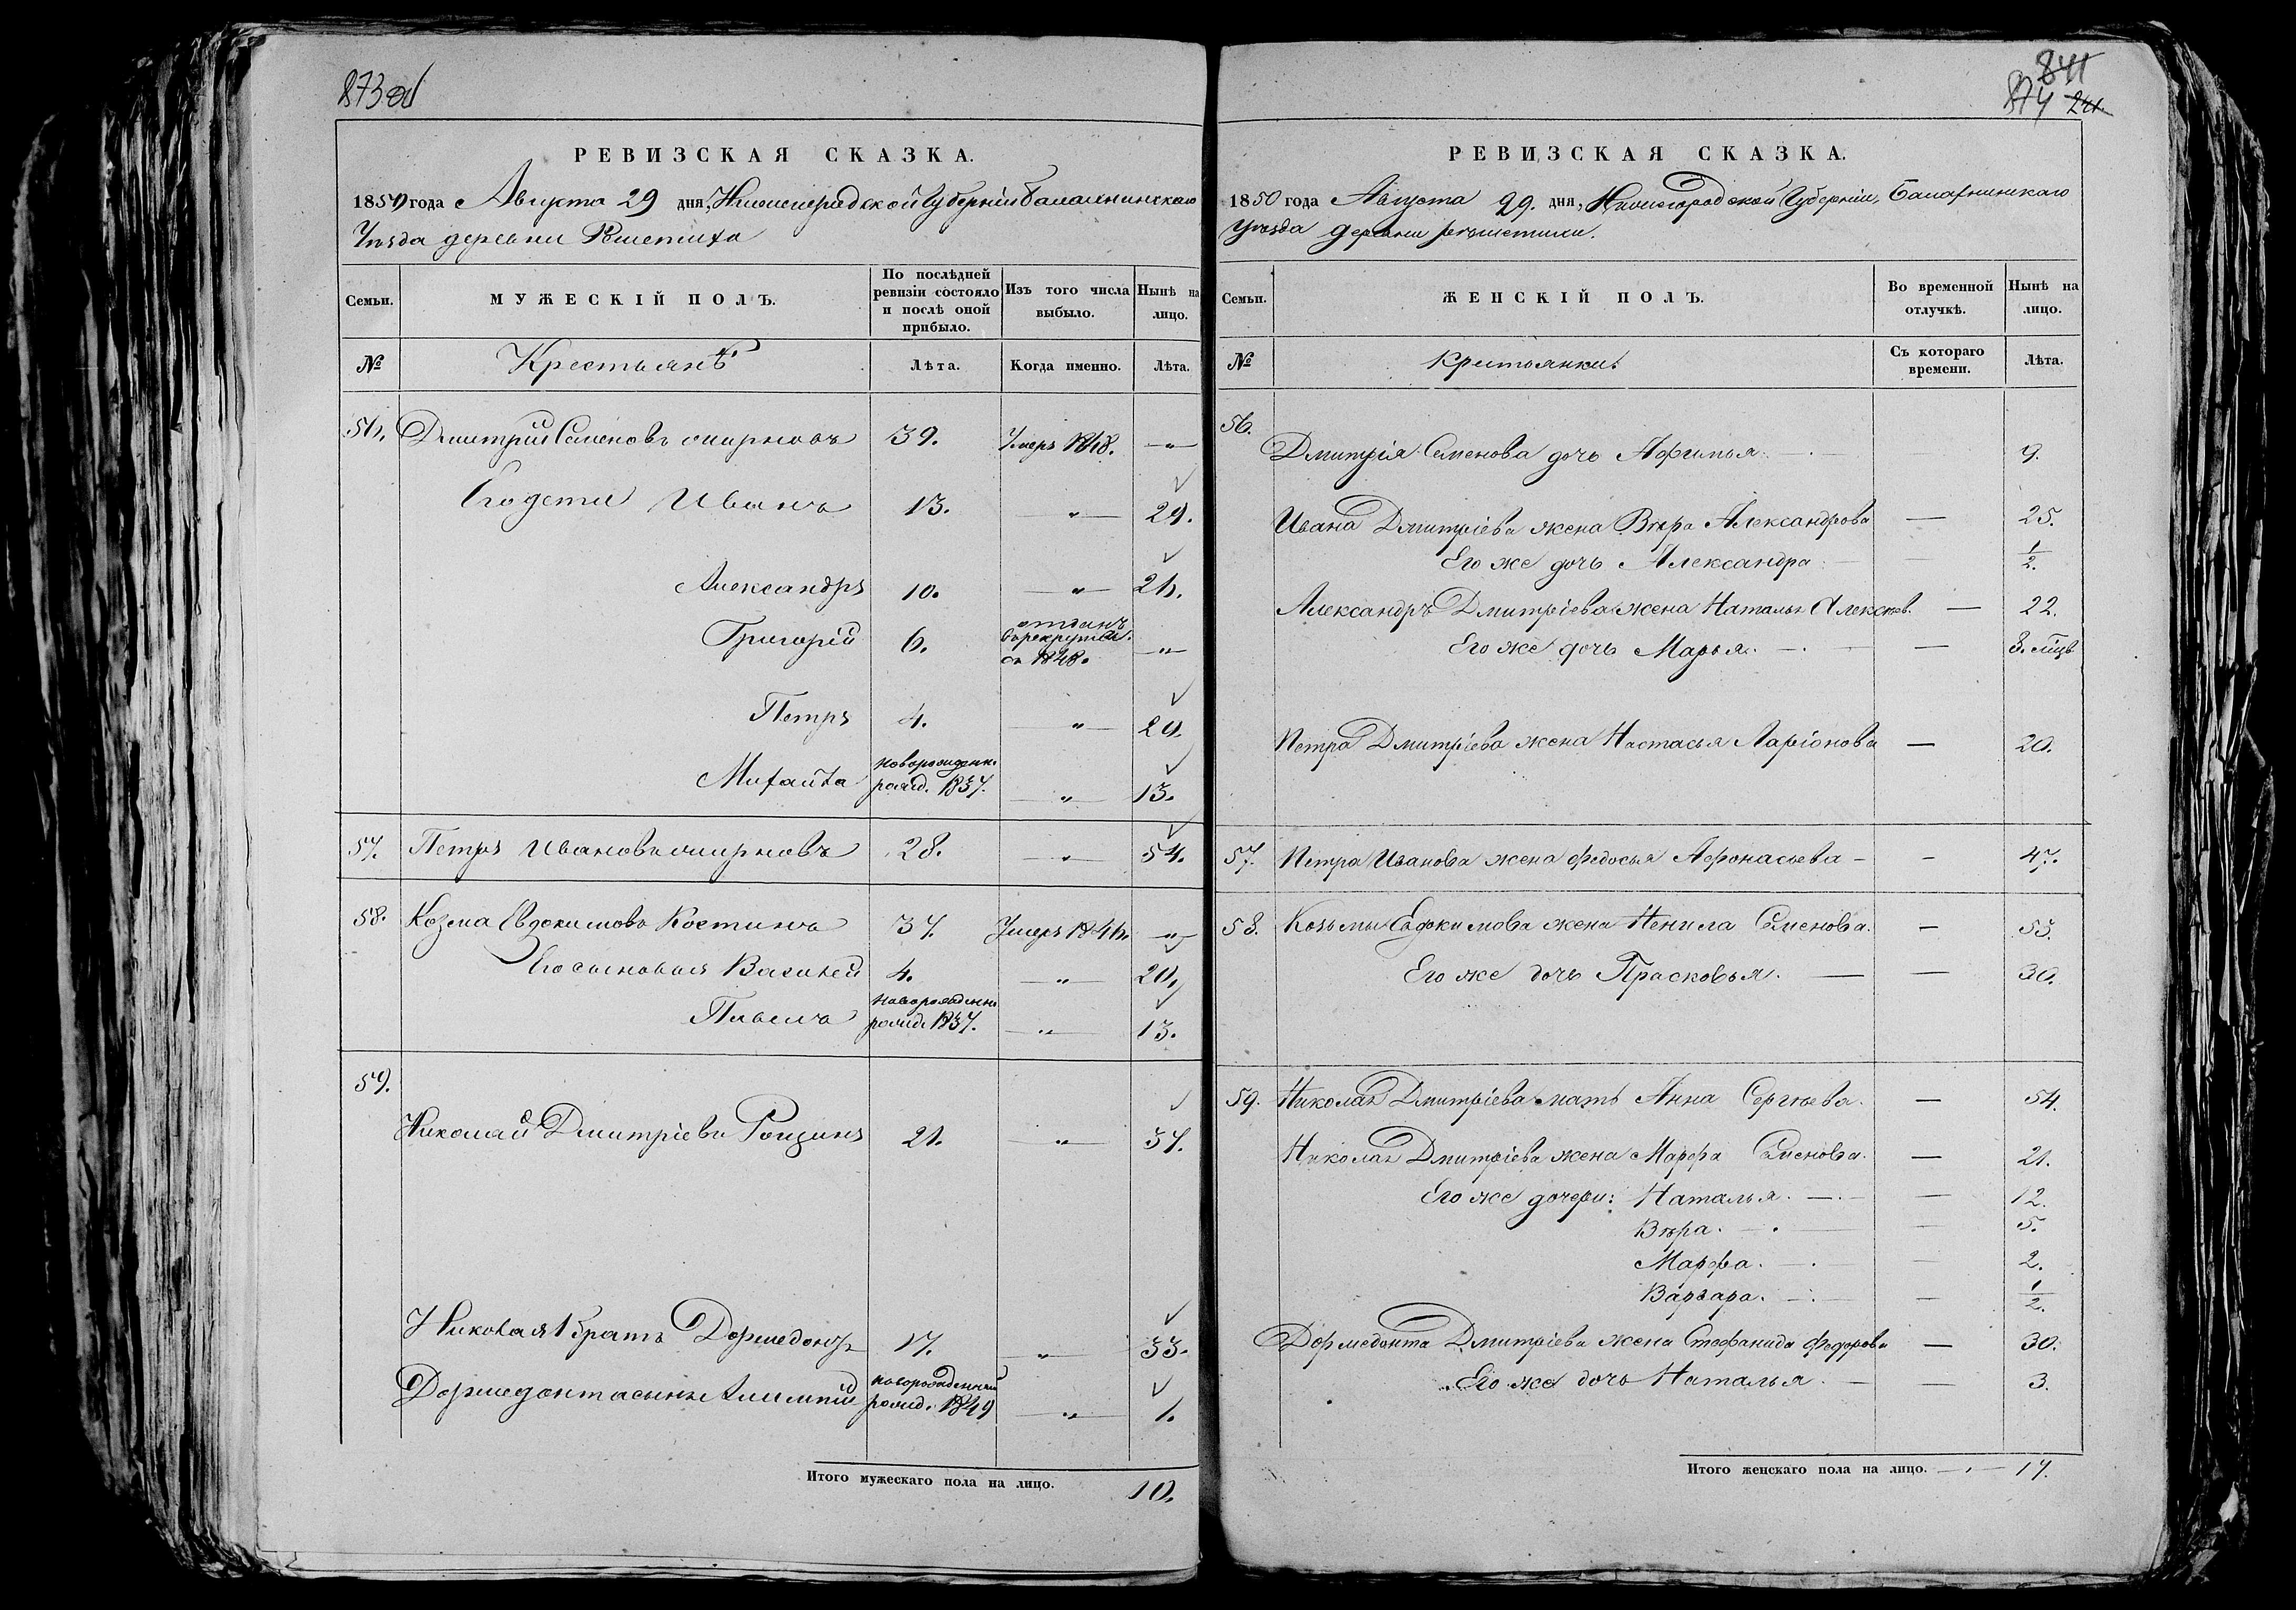 873 об
РЕВИЗСКАЯ СКАЗКА.
1850 года Августа 29 дня, Нижегородской Губерніи Балахнинскаго
Уѣзда деревни Рѣшетиха
Семьи.
МУЖЕСКІЙ ПОЛЪ.
По послѣдней ревизіи состояло и послѣ оной прибыло.
Изъ того числа выбыло.
Нынѣ на лицо.
№
Крестьянъ
Лѣта.
Когда именно.
Лѣта.
56. Дмитрий Семеновъ Смирновъ 39. Умеръ 1848. — „ —
Его дети Иванъ 13. — „ — 29.
Александръ 10. — „ — 26.
Григорій 6. отданъ в рекруты въ 1848. — „ —
Петръ 4. — „ — 20.
Михайла новорожденн. рожд. 1837. — „ — 13.
57. Петръ Ивановъ Смирновъ 28. — „ — 54.
58. Козма Евдокимовъ Костинъ 37. Умеръ 1846. — „ —
Его сыновья Василей 4. — „ — 20.
Павелъ новорожденн. рожд. 1837. — „ — 13.
59.
Николай Дмитріевъ Рощинъ 21. — „ — 37.
Николая братъ Дормедонтъ 17. — „ — 33.
Дормедонта сынъ Алимпій новорожденный рожд. 1849 — „ — 1.
Итого мужескаго пола на лицо. 10.
841
874
241.
РЕВИЗСКАЯ СКАЗКА.
1850 года Августа 29. дня, Нижегородской Губерніи, Балахнинскаго
Уѣзда деревни Рѣшетихи.
Семьи.
ЖЕНСКІЙ ПОЛЪ.
Во временной отлучкѣ.
Нынѣ на лицо.
№
Крестьянки
Съ котораго времени.
Лѣта.
56.
Дмитрія Семенова дочь Афимья. — 9.
Ивана Дмитріева жена Вѣра Александрова — 25.
Его же дочь Александра — 1/2.
Александръ Дмитріева жена Наталья Алексѣев. — 22.
Его же дочь Марья. — 8. мцъ
Петра Дмитріева жена Настасья Ларіонова — 20.
57. Петра Иванова жена Федосья Афонасьева — 47.
58. Козьмы Евдокимова жена Ненила Семенова. — 53.
Его же дочь Прасковья. — 30.
59. Николая Дмитріева мать Анна Сергѣева. — 54.
Николая Дмитріева жена Марфа Семенова. — 21.
Его же дочери: Наталья. — 12.
Вѣра. — 5.
Марфа. — 2.
Варвара. — 1/2.
Дормедонта Дмитріева жена Стефанида Федорова — 30.
Его же дочь Наталья — 3.
Итого женскаго пола на лицо. — 17.